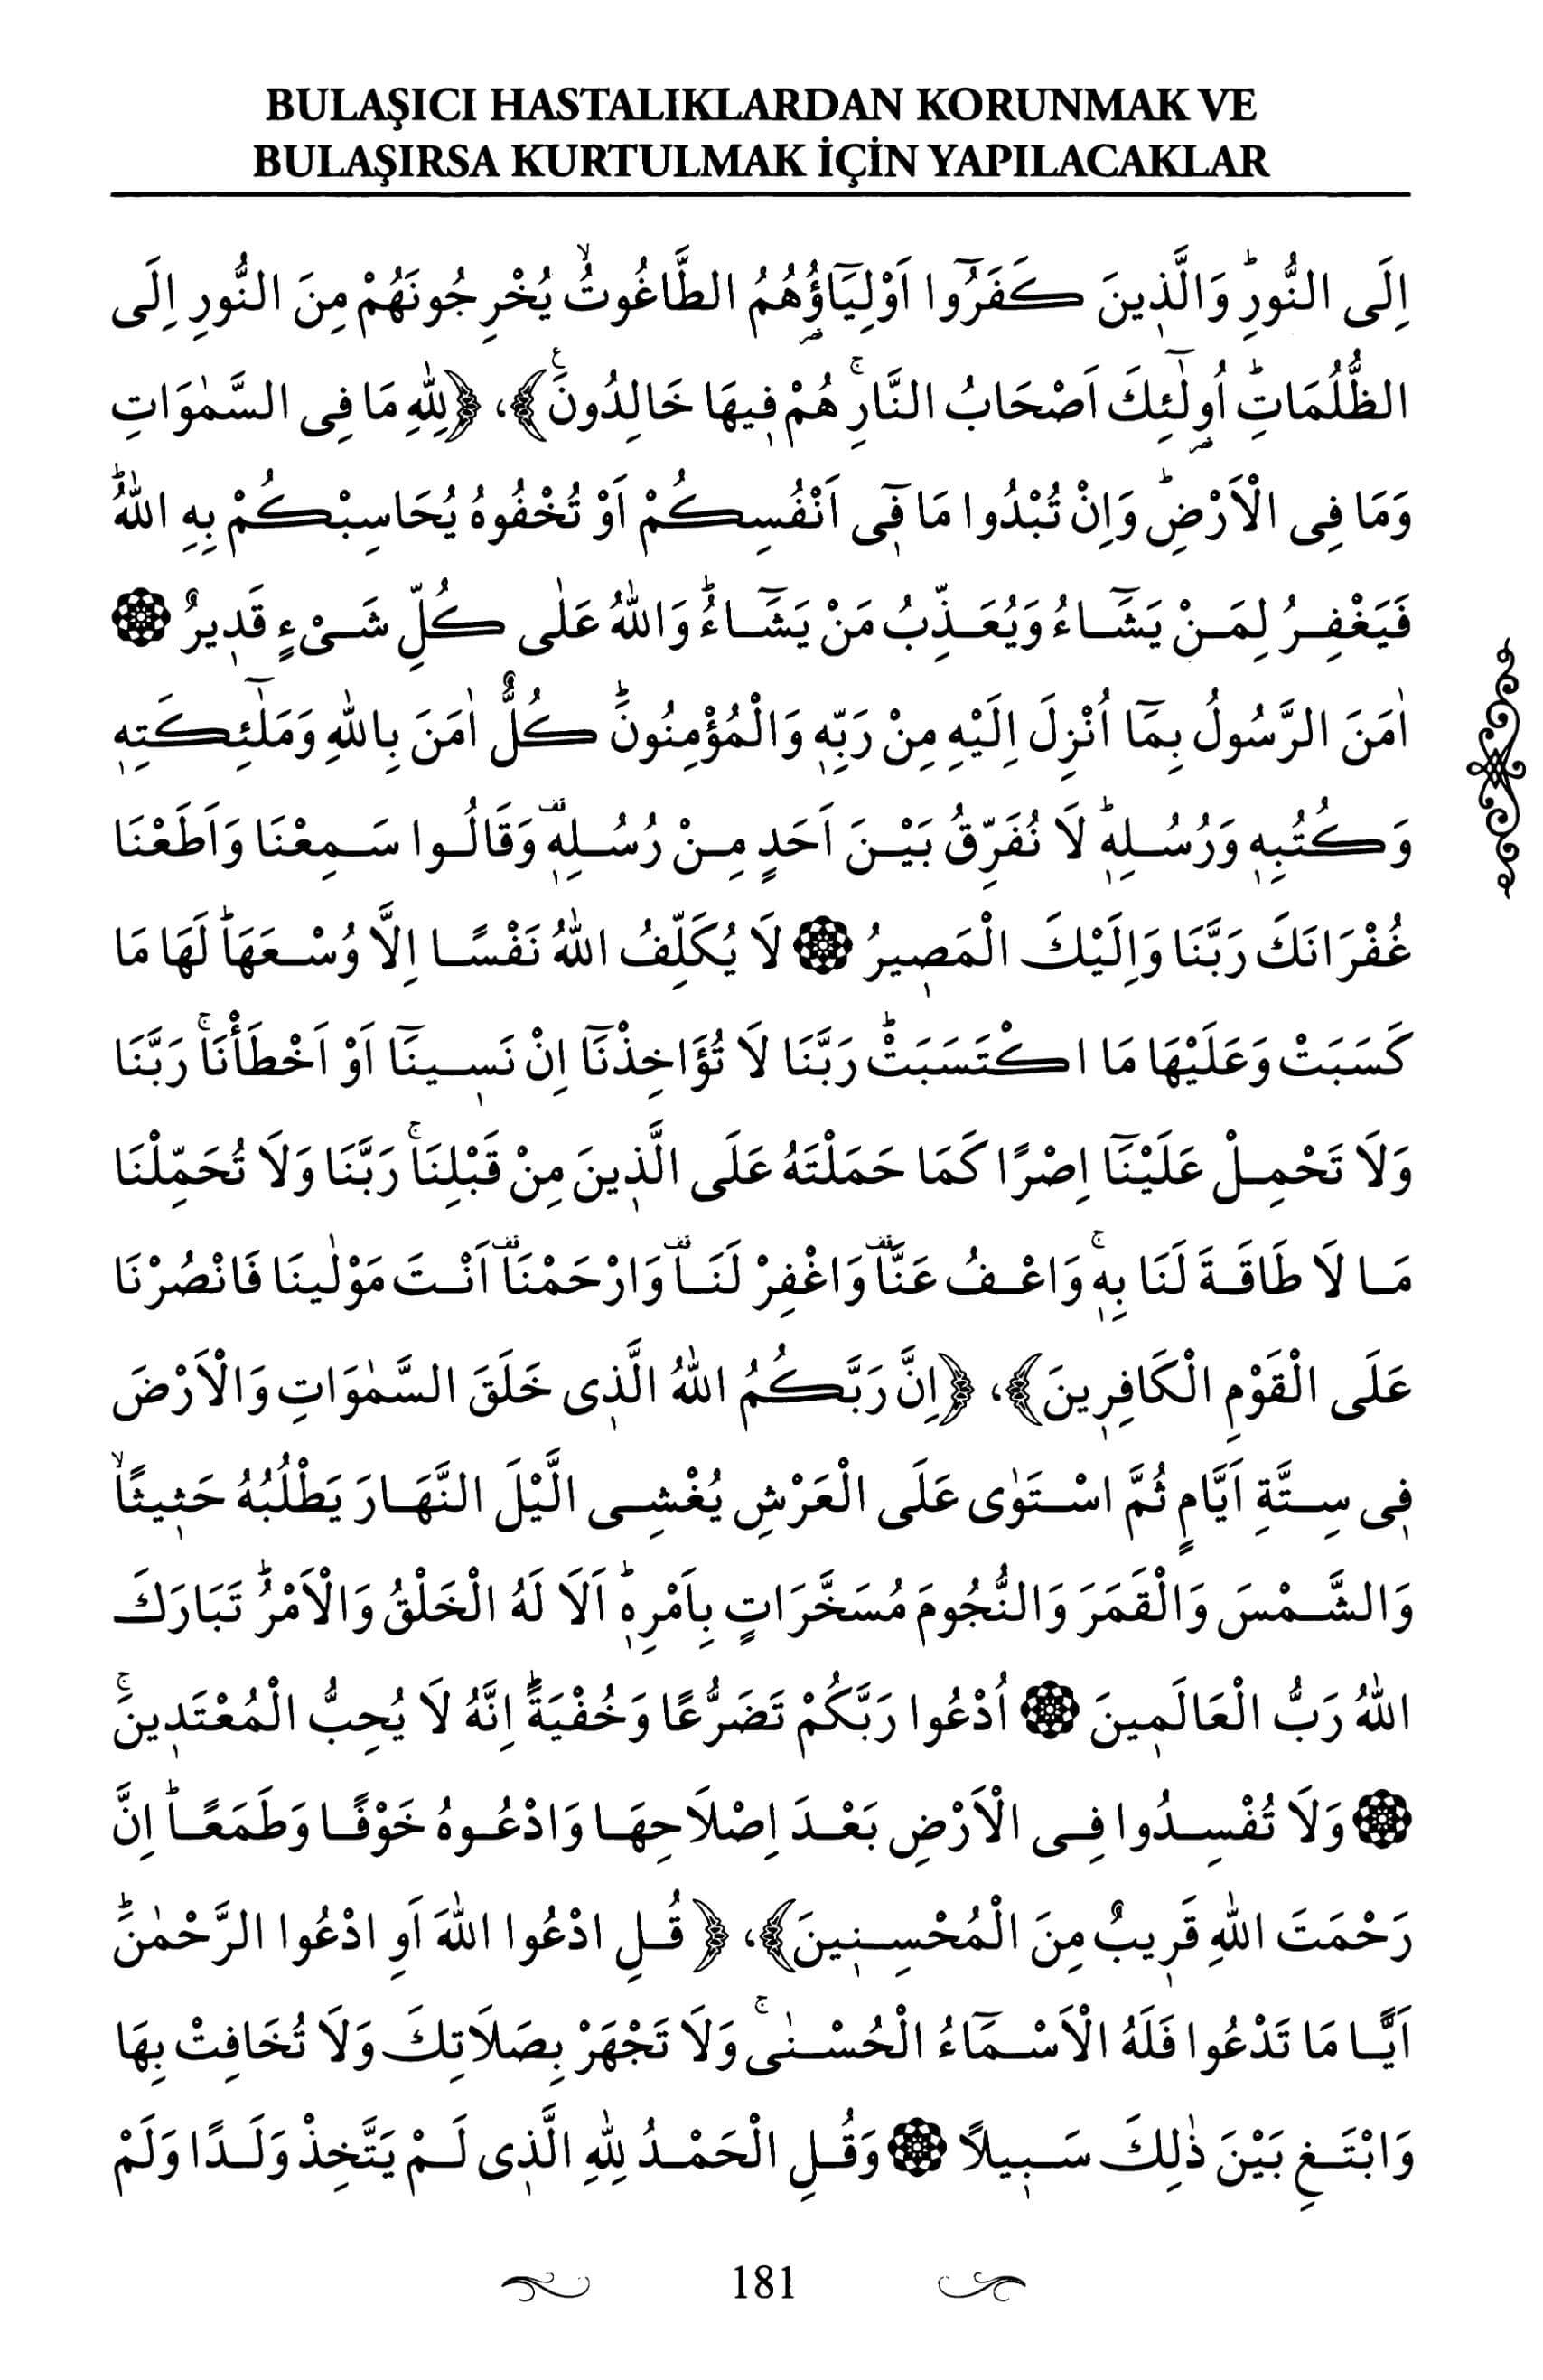 BULAŞICI HASTALIKLARDAN KORUNMAK VE
BULAŞIRSA KURTULMAK İÇİN YAPILACAKLAR
اِلَى النُّورِۜ وَالَّذ۪ينَ كَفَرُٓوا اَوْلِيَٓاؤُ۬هُمُ الطَّاغُوتُۙ يُخْرِجُونَهُمْ مِنَ النُّورِ اِلَى
الظُّلُمَاتِۜ اُو۬لٰٓئِكَ اَصْحَابُ النَّارِۚ هُمْ ف۪يهَا خَالِدُونَۚ﴾، ﴿لِلّٰهِ مَا فِى السَّمٰوَاتِ
وَمَا فِى الْاَرْضِۜ وَاِنْ تُبْدُوا مَا ف۪ٓى اَنْفُسِكُمْ اَوْ تُخْفُوهُ يُحَاسِبْكُمْ بِهِ اللّٰهُۜ
فَيَغْفِرُ لِمَنْ يَشَٓاءُ وَيُعَذِّبُ مَنْ يَشَٓاءُۜ وَاللّٰهُ عَلٰى كُلِّ شَىْءٍ قَد۪يرٌ ۞
اٰمَنَ الرَّسُولُ بِمَٓا اُنْزِلَ اِلَيْهِ مِنْ رَبِّه۪ وَالْمُؤْمِنُونَۜ كُلٌّ اٰمَنَ بِاللّٰهِ وَمَلٰٓئِكَتِه۪
وَكُتُبِه۪ وَرُسُلِه۪ۜ لَا نُفَرِّقُ بَيْنَ اَحَدٍ مِنْ رُسُلِه۪۠ وَقَالُوا سَمِعْنَا وَاَطَعْنَا
غُفْرَانَكَ رَبَّنَا وَاِلَيْكَ الْمَص۪يرُ ۞ لَا يُكَلِّفُ اللّٰهُ نَفْسًا اِلَّا وُسْعَهَاۜ لَهَا مَا
كَسَبَتْ وَعَلَيْهَا مَا اكْتَسَبَتْۜ رَبَّنَا لَا تُؤَاخِذْنَٓا اِنْ نَس۪ينَٓا اَوْ اَخْطَأْنَاۚ رَبَّنَا
وَلَا تَحْمِلْ عَلَيْنَٓا اِصْرًا كَمَا حَمَلْتَهُ عَلَى الَّذ۪ينَ مِنْ قَبْلِنَاۚ رَبَّنَا وَلَا تُحَمِّلْنَا
مَا لَا طَاقَةَ لَنَا بِه۪ۚ وَاعْفُ عَنَّا۠ وَاغْفِرْ لَنَا۠ وَارْحَمْنَا۠ اَنْتَ مَوْلٰينَا فَانْصُرْنَا
عَلَى الْقَوْمِ الْكَافِر۪ينَ﴾، ﴿اِنَّ رَبَّكُمُ اللّٰهُ الَّذ۪ى خَلَقَ السَّمٰوَاتِ وَالْاَرْضَ
ف۪ى سِتَّةِ اَيَّامٍ ثُمَّ اسْتَوٰى عَلَى الْعَرْشِ يُغْشِى الَّيْلَ النَّهَارَ يَطْلُبُهُ حَث۪يثًاۙ
وَالشَّمْسَ وَالْقَمَرَ وَالنُّجُومَ مُسَخَّرَاتٍ بِاَمْرِه۪ۜ اَلَا لَهُ الْخَلْقُ وَالْاَمْرُۜ تَبَارَكَ
اللّٰهُ رَبُّ الْعَالَم۪ينَ ۞ اُدْعُوا رَبَّكُمْ تَضَرُّعًا وَخُفْيَةًۜ اِنَّهُ لَا يُحِبُّ الْمُعْتَد۪ينَۚ
۞ وَلَا تُفْسِدُوا فِى الْاَرْضِ بَعْدَ اِصْلَاحِهَا وَادْعُوهُ خَوْفًا وَطَمَعًاۜ اِنَّ
رَحْمَتَ اللّٰهِ قَر۪يبٌ مِنَ الْمُحْسِن۪ينَ﴾، ﴿قُلِ ادْعُوا اللّٰهَ اَوِ ادْعُوا الرَّحْمٰنَۜ
اَيًّا مَا تَدْعُوا فَلَهُ الْاَسْمَٓاءُ الْحُسْنٰىۚ وَلَا تَجْهَرْ بِصَلَاتِكَ وَلَا تُخَافِتْ بِهَا
وَابْتَغِ بَيْنَ ذٰلِكَ سَب۪يلًا ۞ وَقُلِ الْحَمْدُ لِلّٰهِ الَّذ۪ى لَمْ يَتَّخِذْ وَلَدًا وَلَمْ
181